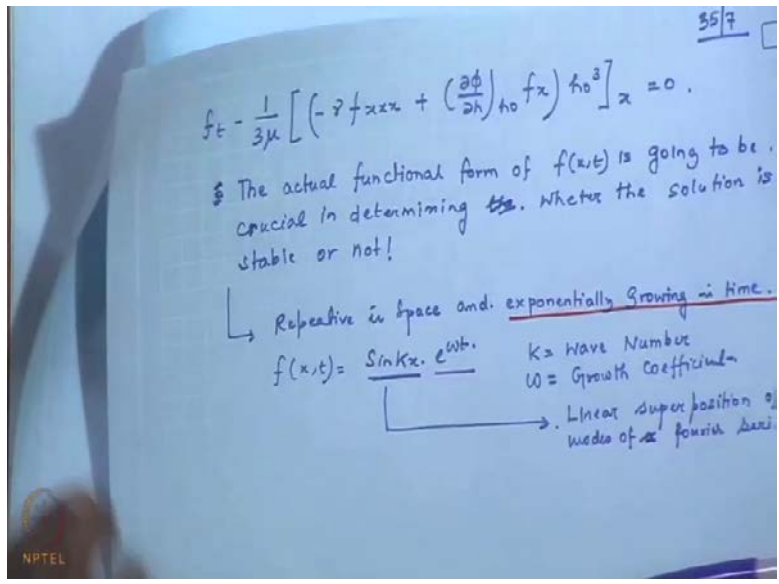 35/7
f_t - 1/3μ [(-γ f_xxx + (∂φ/∂h)_h0 f_x) h0³]_x = 0.
The actual functional form of f(x,t) is going to be.
crucial in determining the. Wheter the solution is
stable or not!
Repeative in Space and. exponentially Growing in time.
f(x,t) = Sin Kx. e^ωt.
K = Wave Number
ω = Growth Coefficient
Linear superposition of
modes of fourier seri
NPTEL